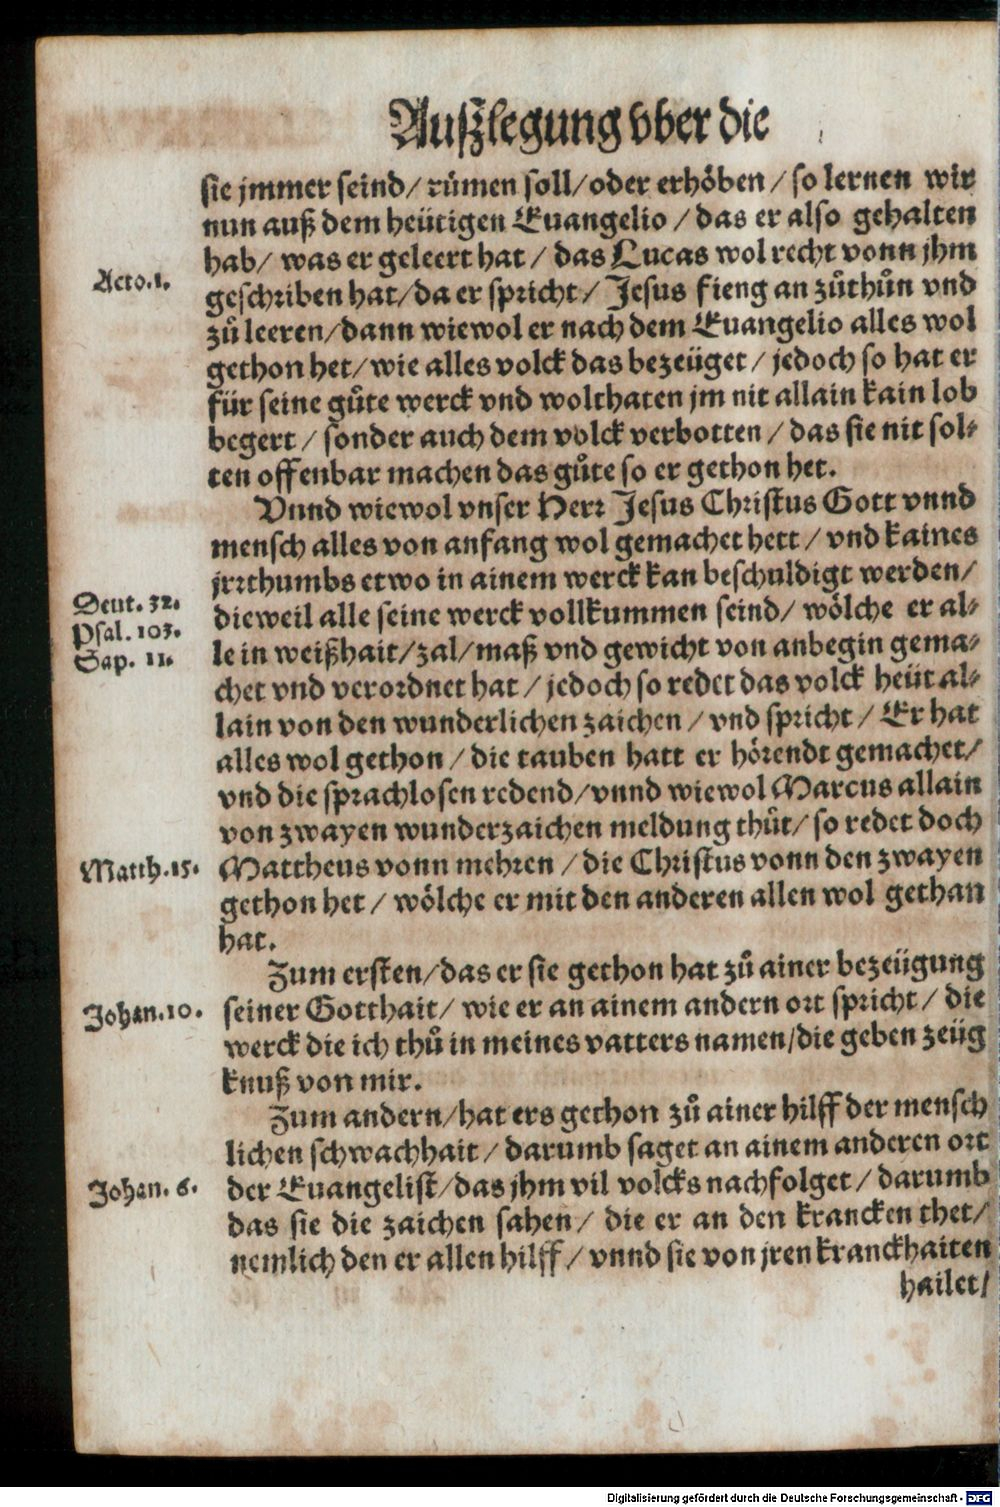 Außlegung vber die
sie jmmer seind/ rümen soll/ oder erhöben/ so lernen wir
nun auß dem heütigen Euangelio/ das er also gehalten
hab/ was er geleert hat/ das Lucas wol recht vonn jhm
Acto.1.
geschriben hat/ da er spricht/ Jesus fieng an zůthůn vnd
zů leeren/ dann wiewol er nach dem Euangelio alles wol
gethon het/ wie alles volck das bezeüget/ jedoch so hat er
für seine gůte werck vnd wolthaten jm nit allain kain lob
begert/ sonder auch dem volck verbotten/ das sie nit sol-
ten offenbar machen das gůte so er gethon het.
Vnnd wiewol vnser Herr Jesus Christus Gott vnnd
mensch alles von anfang wol gemachet hett/ vnd kaines
jrrthumbs etwo in ainem werck kan beschuldigt werden/
Deut. 32.
dieweil alle seine werck vollkummen seind/ wölche er al-
Psal. 103.
Sap. 11.
le in weißhait/ zal/ maß vnd gewicht von anbegin gema-
chet vnd verordnet hat/ jedoch so redet das volck heüt al-
lain von den wunderlichen zaichen/ vnd spricht/ Er hat
alles wol gethon/ die tauben hatt er hörendt gemachet/
vnd die sprachlosen redend/ vnnd wiewol Marcus allain
von zwayen wunderzaichen meldung thůt/ so redet doch
Matth.15.
Mattheus vonn mehren/ die Christus vonn den zwayen
gethon het/ wölche er mit den anderen allen wol gethan
hat.
Zum ersten/ das er sie gethon hat zů ainer bezeügung
Johan.10.
seiner Gotthait/ wie er an ainem andern ort spricht/ die
werck die ich thů in meines vatters namen/ die geben zeüg
knuß von mir.
Zum andern/ hat ers gethon zů ainer hilff der mensch
lichen schwachhait/ darumb saget an ainem anderen ort
Johan. 6.
der Euangelist/ das jhm vil volcks nachfolget/ darumb
das sie die zaichen sahen/ die er an den krancken thet/
nemlich den er allen hilff/ vnnd sie von jren kranckhaiten
hailet/
Digitalisierung gefördert durch die Deutsche Forschungsgemeinschaft - DFG